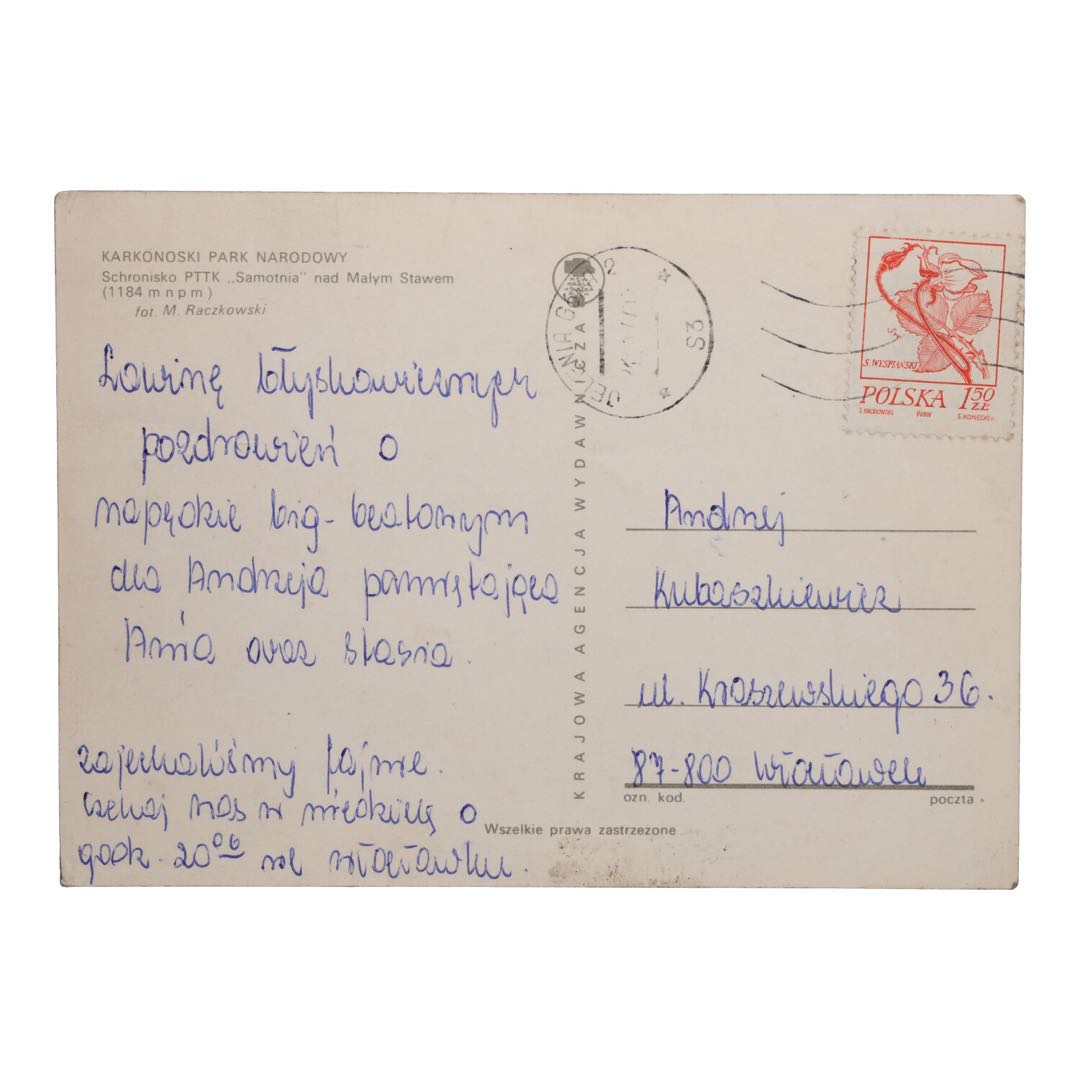 KARKONOSKI PARK NARODOWY
Schronisko PTTK „Samotnia" nad Małym Stawem
(1184 m n p m)
fot. M. Raczkowski
Lawinę błyskawicznych
pozdrowień o
napędzie big-beatowym
dla Andrzeja pamiętająca
Ania oraz Stasia.
zajechaliśmy fajnie.
czekaj nas w niedzielę o
godz. 20⁰⁶ we Włocławku.
KRAJOWA AGENCJA WYDAWNICZA
Wszelkie prawa zastrzeżone
JELENIA G 2
S3
S. WYSPIAŃSKI
POLSKA 1 50 ZŁ
PWPW
Andrzej
Kubaszkiewicz
ul. Kraszewskiego 36.
87-800 Włocławek
ozn. kod. poczta